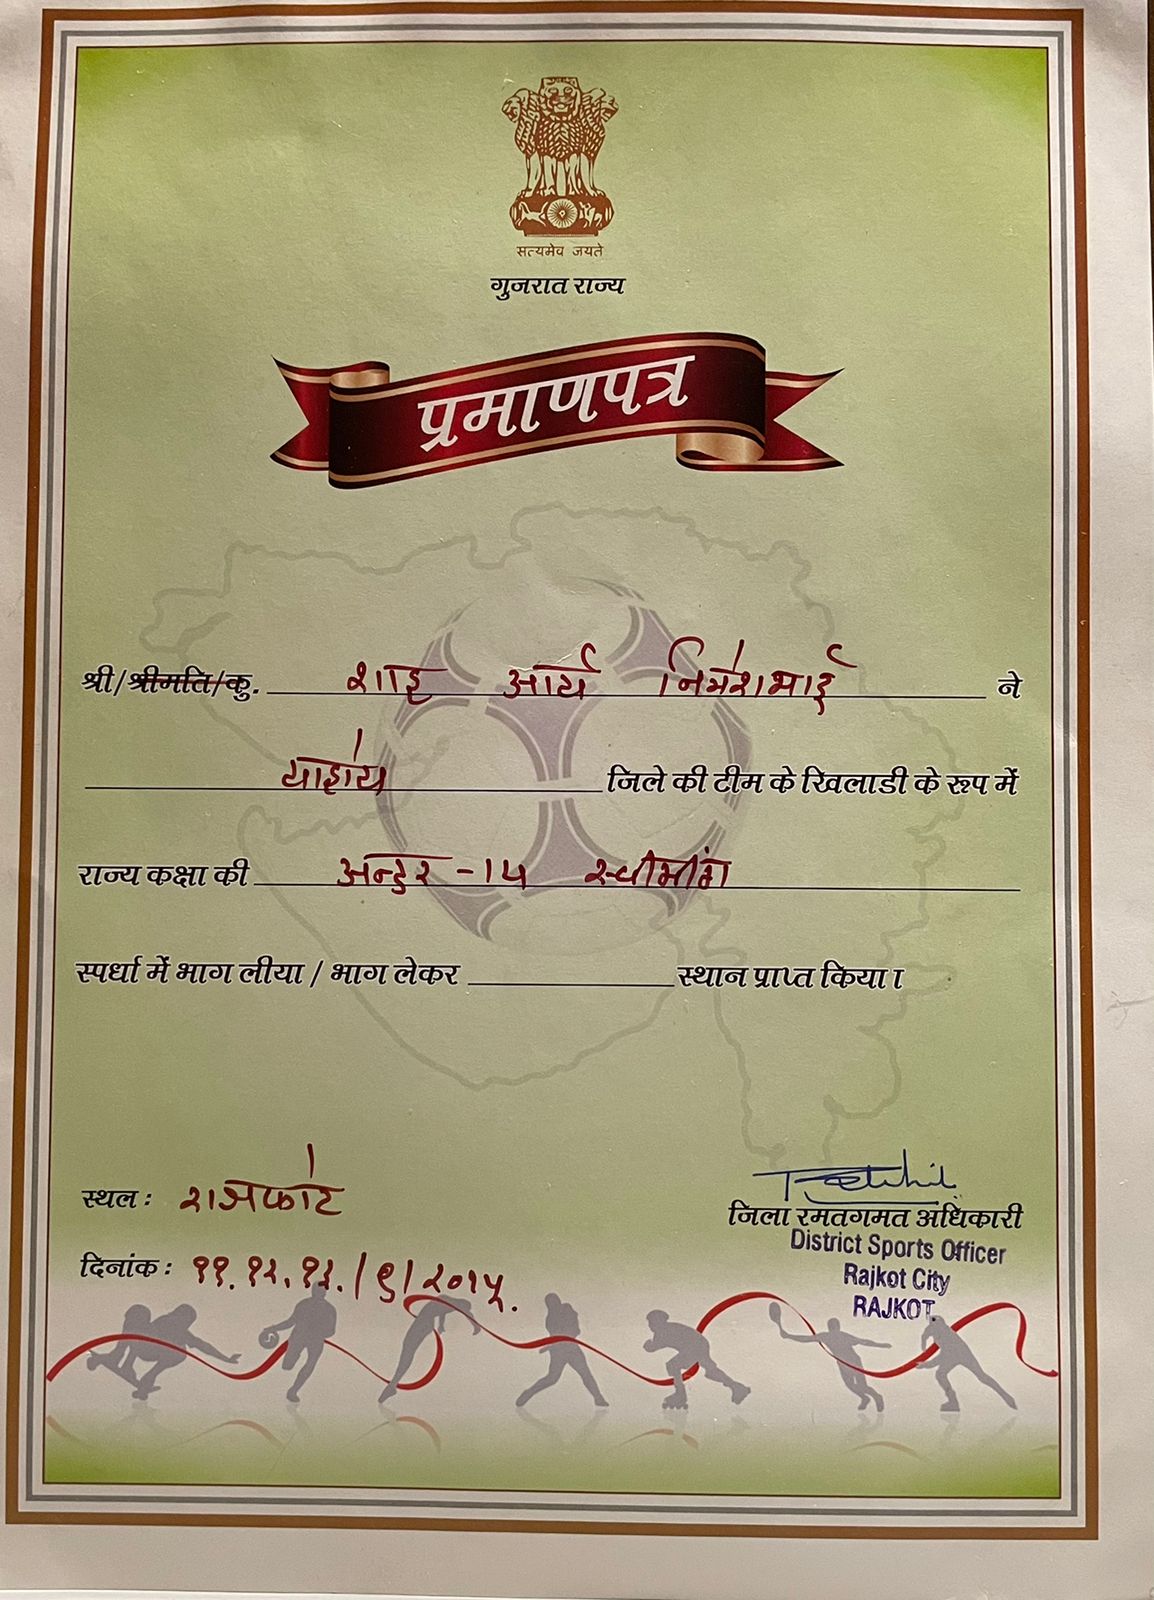 सत्यमेव जयते
गुजरात राज्य
प्रमाणपत्र
श्री/श्रीमति/कु. शाह आर्य निमेशभाई ने
जिले की टीम के खिलाडी के रूप में
राज्य कक्षा की अन्डर -१५ स्वीमींग
स्पर्धा में भाग लीया / भाग लेकर स्थान प्राप्त किया।
स्थल : राजकोट
दिनांक : ११.१२.१३./९/२०१५.
जिला रमतगमत अधिकारी
District Sports Officer
Rajkot City
RAJKOT.